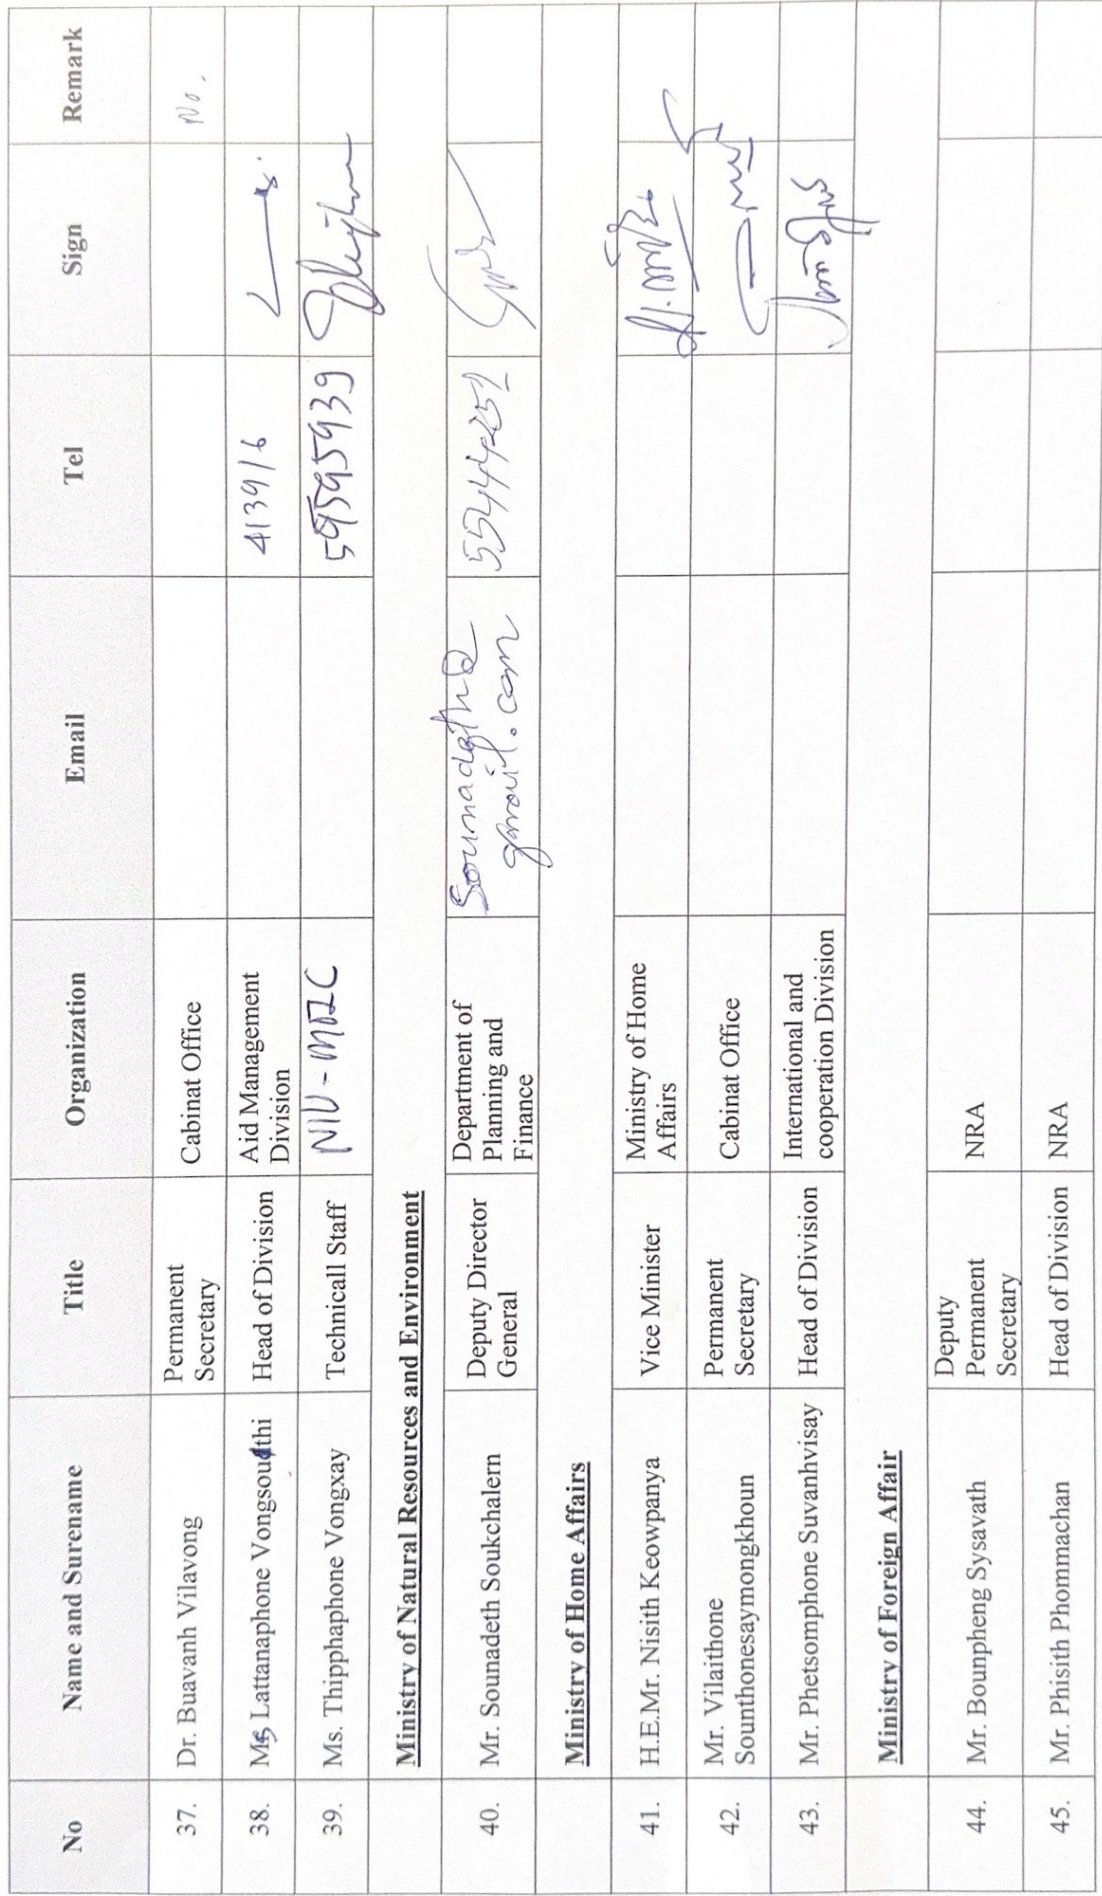 No Name and Surename Title Organization Email Tel Sign Remark
37. Dr. Buavanh Vilavong Permanent Cabinat Office No.
Secretary
38. Ms Lattanaphone Vongsouthi Head of Division Aid Management 413916
Division
39. Ms. Thipphaphone Vongxay Technicall Staff 59595939
Ministry of Natural Resources and Environment
40. Mr. Sounadeth Soukchalern Deputy Director Department of
General Planning and gmail.com
Finance
Ministry of Home Affairs
41. H.E.Mr. Nisith Keowpanya Vice Minister Ministry of Home
Affairs
42. Mr. Vilaithone Permanent Cabinat Office
Sounthonesaymongkhoun Secretary
43. Mr. Phetsomphone Suvanhvisay Head of Division International and
cooperation Division
Ministry of Foreign Affair
44. Mr. Bounpheng Sysavath Deputy NRA
Permanent
Secretary
45. Mr. Phisith Phommachan Head of Division NRA